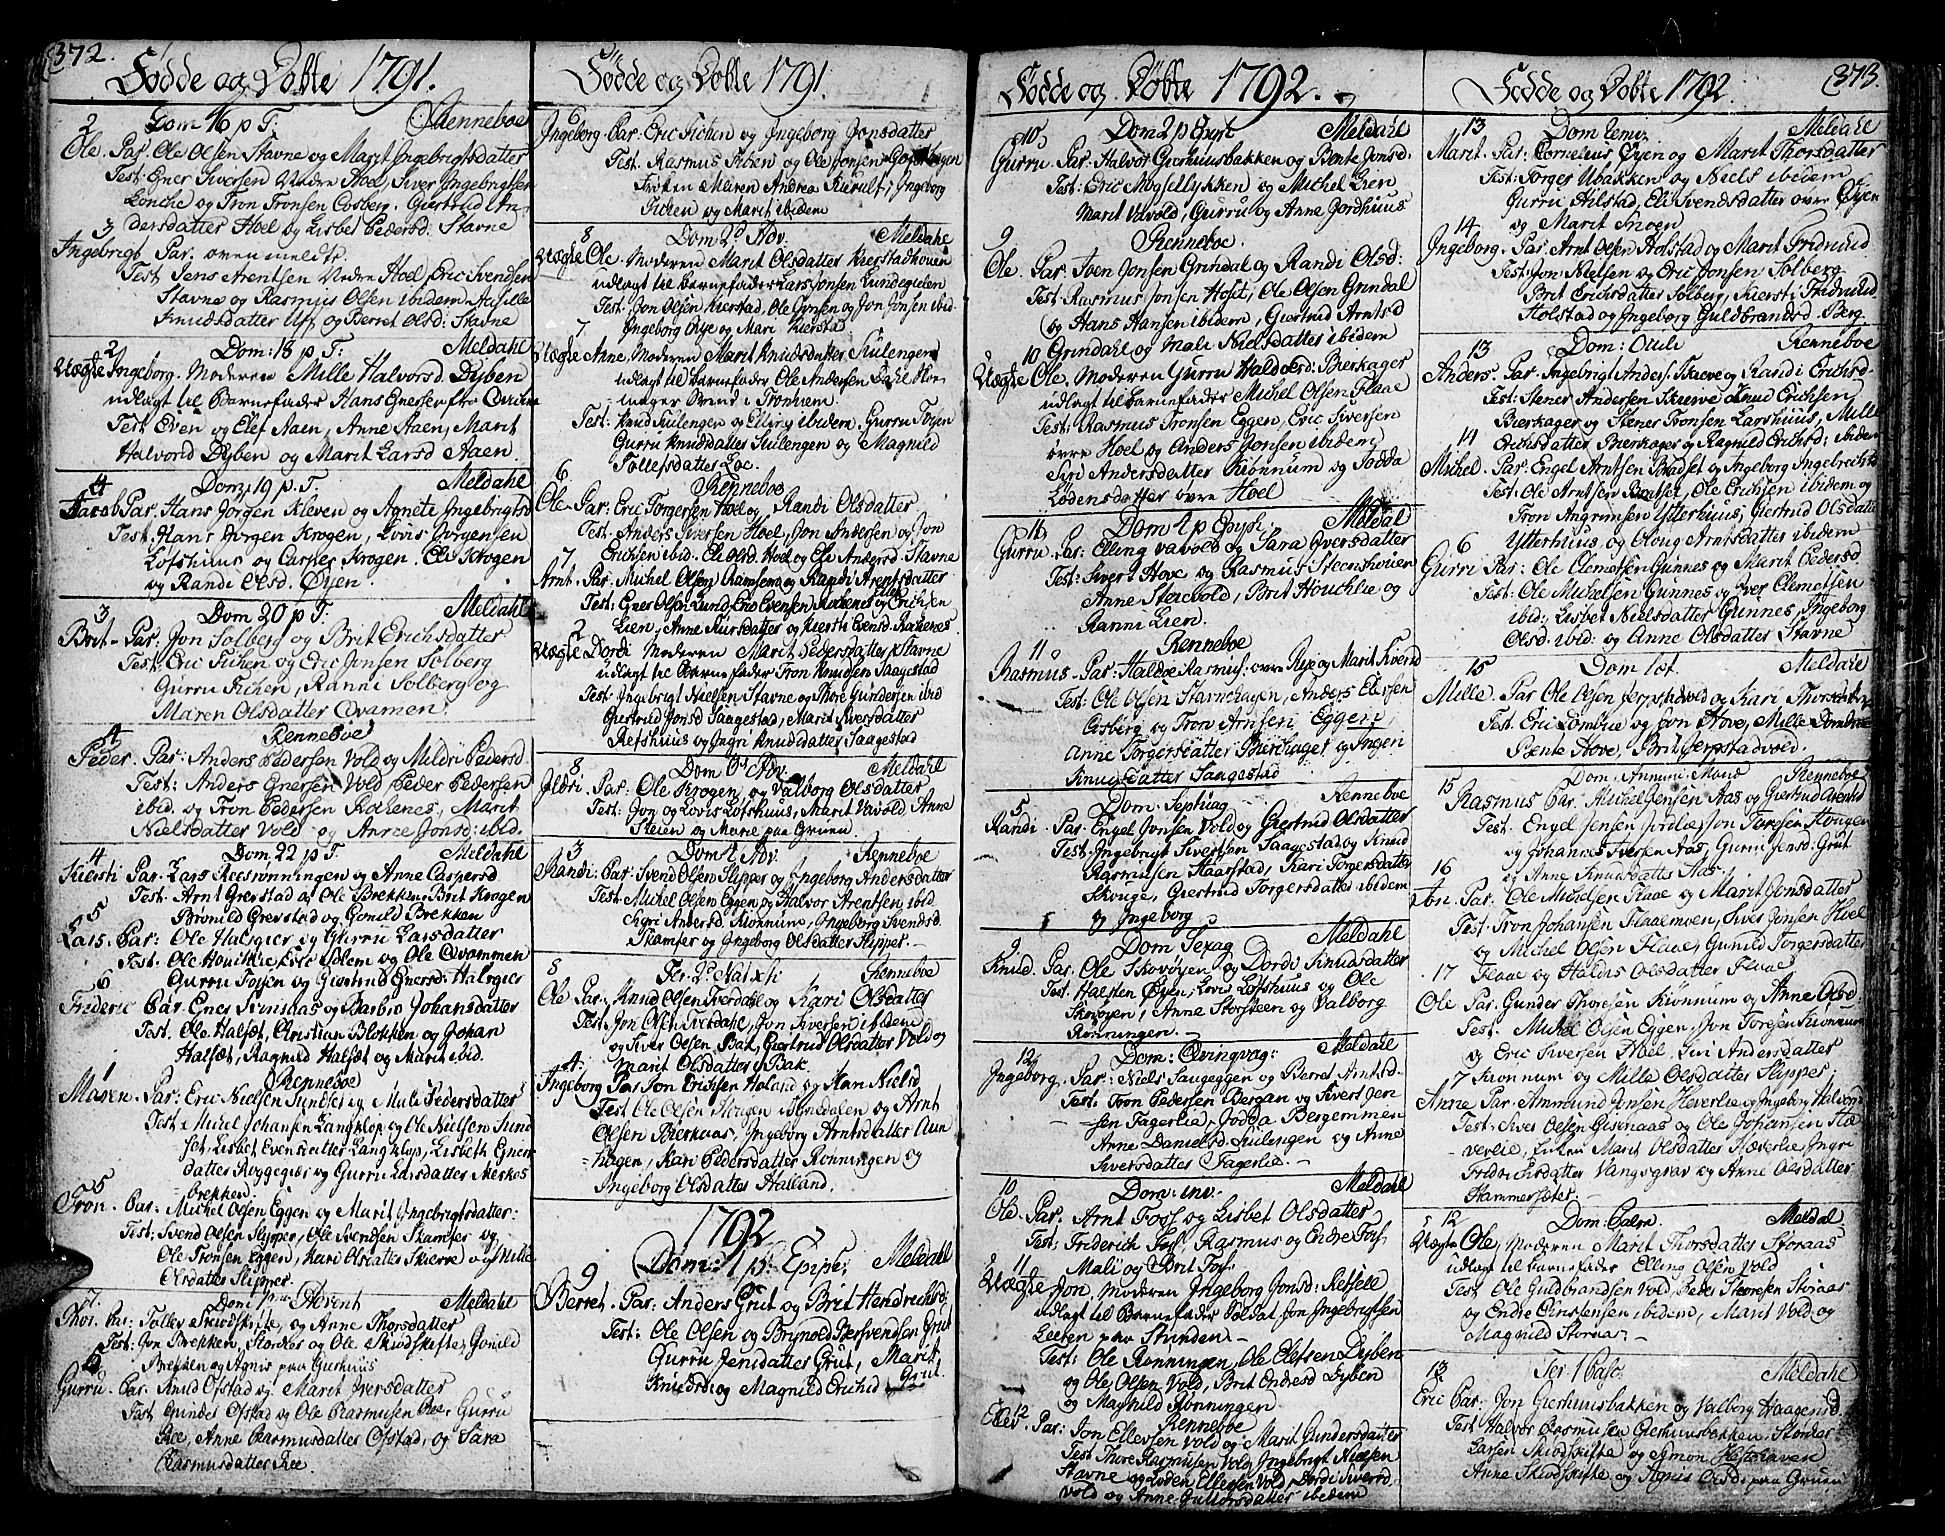 372.
Fødde og Døbte 1791.
2 Dom 16 p T. Renneboe
Ole Par. Ole Olsen Stavne og Marit Ingebrigtsdatter
Test: Ener Siversen Nedre Hoel, Siver Ingebrigtsen
Lonche og Tron Tronsen Cosberg. Giertrud An-
3 dersdatter Hoel og Lisbet Pedersd: Stavne
Ingebrigt Par. oven meldte
Test Jens Arentsen Nedre Hoel, Eric Svendsen
Stavne og Rasmus Olsen ibidem
Knudsdatter Uf og Berret Olsd: Stavne
2 Dom: 18 p T: Meldahl
Uægte Ingeborg. Moderen Mille Halvorsd Dyben
udlagt til Barnefader Hans Enersen fra
Test Even og Elef Aaen, Anne Aaen, Marit
Halvorsd Dyben og Marit Larsd Aaen.
4 Dom: 19 p. T. Meldahl
Jacob Par. Hans Jørgen Kleven og Agnete Ingebrigtsd
Test: Hans Jørgen Krogen, Lovis Jørgensen
Løfshuus og Casper Krogen. Ele Krogen
og Randi Olsd. Øyen.
3 Dom 20 p T. Meldahl
Brit Par. Jon Solberg og Brit Erichsdatter
Test: Eric Fichen og Eric Jonsen Solberg
Gurru Fichen, Ranni Solberg og
Maren Olsdatter Qvamen.
4 Renneboe
Peder Par: Anders Pedersen Vold og Mildri Pedersd
Test: Anders Enersen Vold Peder Pedersen
ibid og Tron Pedersen Rokenes, Marit
Nielsdatter Vold og Anne Jonsd: ibid.
4 Dom 22 p T. Meldahl
Kiersti Par. Lars Reesrønningen og Anne Caspersd
Test. Arnt Grevstad og Ole Brekken, Brit Krogen
Bronild Grevstad og Gonild Brekken
5
Lars. Par: Ole Halsgier og Gurru Larsdatter
Test. Ole Houckie Idlem og Ole Qvammen
Gurru Tossen og Giertrud Enersd: Halsgier
6
Frideric Par. Ener Svinsaas og Barbro Johansdatter
Test. Ole Halsæt, Christian Blokken og Johan
Halsæt, Ragnild Halsæt og Marit ibid.
1 Renneboe
Maren Par: Eric Nielsen Sundset og Mali Pedersdatter
Test. Michel Johansen Langklop og Ole Nielsen Sund
set, Lisbet Evensdatter Langklop, Lisbeth Ener
datter Roggegier og Gurru Larsdatter Merkes
brekken.
5
Tron. Par: Michel Olsen Eggen og Marit Ingebrigtsdatter:
Test: Svend Olsen Slipper, Ole Svendsen Skamfer og
Ole Tronsen Eggen, Kari Olsdatter Skierve og Mille
Olsdatter Slipper.
7. Dom 1 p Advent Meldahl
Thor. Par: Tolles Skiødskifte, og Anne Thorsdatter
Test: Jon Brekken, Stordes og Ole Skiødskifte, Gonild
Brekken og Agnis paa Gushuus
Gurru. Par. Knud Ofstad og Marit Iversdatter
Test. Ofstad og Ole Rasmusen Ree, Gurru
Ree, Anne Rasmusdatter Ofstad, og Sara
Rasmusdatter Ree.
Fødde og Døbte 1791.
6
Ingeborg Par: Eric Fichen og Ingeborg Jonsdatter
Test: Rasmus Fichen og Ole Jonsen
Frøken Maren Andrea Kurult, Ingeborg
Fichen og Marit ibidem
8 Dom 2. Adv. Meldahl
Uægte Ole. Moderen Marit Olsdatter Kierstadhouen
udlagt til barnefader Lars Jonsen
Test: Jon Olsen Kierstad, Ole Jonsen og Jon Jonsen ibid.
7. Ingeborg Rye og Mari Kierstad
Uægte Anne, Moderen Marit Knudsdatter Siulengen
udlagt til barnefader Ole Andersen Dahl
mager Svend i Tronhiem.
Test: Knud Siulengen og Elling ibidem, Gurru
Gurru Knudsdatter Siulengen og Magnild
Tollefsdatter Loe.
6 Renneboe
Ole Par: Eric Torgersen Hoel og Randi Olsdatter
Test. Anders Siversen Hoel, Jon Andersen og Jon
Erichsen ibid. Eli Olsd. Hoel og Eli Andersd. Stavne
7
Arnt. Par. Michel Olsen Ramsem og Randi Arentsdatter
Test: Ener Olsen Lund, Eric Evensen Rokenes og Erichsen
Lien, Anne Siursdatter og Kiersti Evensd: Rokenes
2
Uægte Dordi Moderen Marit Pedersdatter Stavne
udlagt til Barnefader Tron Knudsen Saagestad
Test: Ingebrigt Nielsen Stavne og Thore Gundersen ibid
Giertrud Jonsd Saagestad, Marit Siversdatter
Refshuus og Ingri Knudsdatter Saagestad
8 Dom 3 Adv. Meldahl
Ildri Par. Ole Krogen, og Valborg Olsdatter
Test: Jon og Lovis Løfshuus, Marit Vavold, Anne
Steien og Marie paa Gruen.
3 Dom 4 Adv. Renneboe
Randi: Par: Svend Olsen Slipper og Ingeborg Andersdatter
Test. Michel Olsen Eggen og Halvor Arentsen ibid
Sigri Andersd. Kronnum, Ingeborg Svendsd.
Skamfer og Ingeborg Olsdatter Slipper.
8 Fer. 2. Nat. xsti Renneboe
Ole Par. Knud Olsen Tverdahl og Kari Olsdatter
Test: Jon Olsen Tverdahl, Jon Siversen ibidem
og Siver Olsen Bak, Giertrud Olsdatter Vold og
4. Marit Olsdatter Bak
Ingeborg Par Jon Erichsen Haland og Nielsd
Test Ole Olsen Skogen i Jonsdalen og Arnt
Olsen Bierkaas. Ingeborg Arntsdatter Aun
hagen, Kari Pedersdatter Rønningen og
Ingeborg Olsdatter Halland.
1792
Dom: 1 p: Epiph: Meldahl
9
Berret. Par: Anders Grut og Brit Hendrichsd:
Test: Ole Olsen og Brynold Bersvendsen Grut
Gurru Jensdatter Grut, Marit
Knudsd og Magnild Erichsd Grut.
Fødde og Døbte 1792.
10 Dom 2 p Epyh Meldahl
Gurru Par: Halvor Gierhuusbakken og Bente Jonsd.
Test: Eric Mogsellykken og Michel Lien
Marit Vavold, Gurru og Anne Jordhuus
9 Renneboe.
Ole Par: Iven Jonsen Grindal og Randi Olsd:
Test: Rasmus Jonsen Hoset, Ole Olsen Grindal
og Hans Hansen ibidem, Giertrud Arntsd
10 Grindahl og Mali Nielsdatter ibidem
Uægte Ole. Moderen Gurru Haldoersd: Bierkager
udlagt til barnefader Michel Olsen Flaa
Test: Rasmus Tronsen Eggen, Eric Siversen
øvre Hoel og Anders Jonsen ibidem,
Siri Andersdatter Kronnum og Jodda
Lodensdatter øvre Hoel
11 Dom 2 p Epyph. Meldal
Gurru Par: Elling Vavold og Sara Iversdatter
Test: Siver Hove og Rasmus Steenshouen
Anne Stervold, Brit Houchlie og
Ranni Lien.
11 Renneboe
Rasmus. Par: Haldoe Rasmus: øvre Rye og Marit Siversd
Test: Ole Olsen Stavnehagen, Anders Elevsen
Cosberg og Tron Arnsen Eggen,
Anne Torgersdatter Bierkager og Ingeri
Knudsdatter Saagestad
5 Dom: Septuag Renneboe
Randi. Par: Engel Jonsen Vold og Giertrud Olsdatter
Test. Ingebrigt Sivertsen Saagestad og Knud
Rasmusen Haarstad, Kari Torgersdatter
Skouge, Giertrud Torgersdatter ibidem
og Ingeborg
9 Dom Sexag Meldahl
Knud. Par. Ole Skovøyen og Dordi Knudsdatter
Test: Halsten Øyen, Lovis Løfshuus og Ole
Skovøyen, Anne Storsteen og Valborg
Rønningen.
12 Dom: Qvinqvag: Meldahl
Ingeborg. Par: Niels Saugeggen og Berret Arntsd.
Test. Tron Pedersen Bergan og Sivert Jen
sen Fagerlie, Jodda Bergemmen
Anne Danielsd. Siulengen og Anne
Siversdatter Fagerlie.
10 Dom: inv. Meldahl
Ole. Par: Arnt Foss og Lisbet Olsdatter
Test: Friderich Foss, Rasmus og Endre Foss,
11 Mali og Brit Foss.
Uægte Jon, Moderen Ingeborg Jonsd: Refselle
udlagt til Barnefader Soldat Jon Ingebrigtsen
Leeten paa Strinden.
Test: Ole Rønningen, Ole Elefsen Dyben
og Ole Olsen Vold, Brit Endresd Dyben
og Maghild Rønningen
12 Renneboe
Elev Par: Jon Ellevsen Vold og Marit Gundersdatter
Test Thore Rasmusen Vold, Ingebrigt Nielsen
Stavne og Loden Ellevsen Vold, Dordi Siversd
Vold og Anne Gullorsdatter ibidem
Fødde og Døbte 1792. 373.
13 Dom Remi: Meldahl
Marit. Par: Cornelius Øyen og Marit Thorsdatter
Test: Torger Ubakken og Niels ibidem
Gurru Hilstad, Eli Svendsdatter øvre Øyen
14. og Marit Snoen
Ingeborg. Par: Arnt Olsen Holstad og Marit Fridriund
Test: Jon Nielsen og Eric Jonsen Solberg
Brit Erichsdatter Solberg, Kiersti Fridriund
Holstad og Ingeborg Guldbrandsd. Berg.
13 Dom: Oculi Renneboe
Anders. Par: Ingebrigt Anders: Skierve og Randi Erichsd
Test: Stener Andersen Skierve Knud Erichsen
Bierkager og Stener Tronsen Larshuus, Mille
14 Erichsdatter Bierkager og Ragnild Erichsd: ibidem
Michel Par. Engel Arntsen Bradset og Ingeborg Ingebrichtsd
Test: Ole Arntsen Bradset, Ole Erichsen ibidem og
Tron Angrimsen Ytterhuus, Giertrud Olsdatter
6 Ytterhuus og Oloug Arntsdatter ibidem
Gurri Par: Ole Clemetsen Gunnes og Marit Pedersd
Test: Ole Michelsen Gunnes og Iver Clemetsen
ibid: Lisbet Nielsdatter Gunnes, Ingeborg
Olsd: ibid: og Anne Olsdatter Stavne
15 Dom Læt. Meldahl
Mille. Par Ole Olsen Jerpstadvold og Kari Thorsdatter
Test: Eric Lombue og Jon Hove, Mille
Bente Hove, Brit Jerpstadvold.
15 Dom. Annunc: Mariæ Renneboe
Rasmus Par. Michel Jensen Aas og Giertrud Arentsd
Test. Engel Jensen Jordlæ, Jon Toresen Hougen
og Johannes Iversen Aas, Gurru Jonsd: Grut
16 og Anne Knudsdatter Aas.
Jon. Par: Ole Michelsen Flaae og Marit Jonsdatter
Test: Tron Johansen Flaaemoen, Siver Jonsen Hoel
og Michel Olsen Flaae, Gunild Torgersdatter
17 Flaae og Haldis Olsdatter Flaae
Ole Par: Gunder Thoresen Kronnum og Anne Olsd
Test: Michel Olsen Eggen, Jon Toresen Kronnum
og Eric Siversen Hoel, Siri Andersdatter
7 Kronnum og Mille Olsdatter Slipper,
Anne Par: Ammund Jonsen Heverlie og Ingeborg Halvorsd
Test: Siver Olsen Gisnaas og Ole Johansen Hæ
verlie, Enken Marit Olsdatter Hæverlie, Ingri
Fridrichsdatter Vangsgrav og Anne Olsdatter
Hammersæter.
12 Dom: Palm. Meldal
Uægte Ole, Moderen Marit Thorsdatter Storaas
udlagt til barnefader Elling Olsen Vold
Test: Ole Guldbrandsen Vold, Peder Thoresen Storaas
og Endre Cirstensen ibidem, Marit Vold og
Magnild Storaas.
13. Fer 1 Pasc. Meldahl
Eric Par. Jon Gierhuusbakken og Valborg Haagensd
Test. Halvor Rasmusen Gierhuusbakken, Stordes
Larsen Skiødskifte og Symon Hestehaven
Anne Skiødskifte og Agnis Olsd: paa Gruen